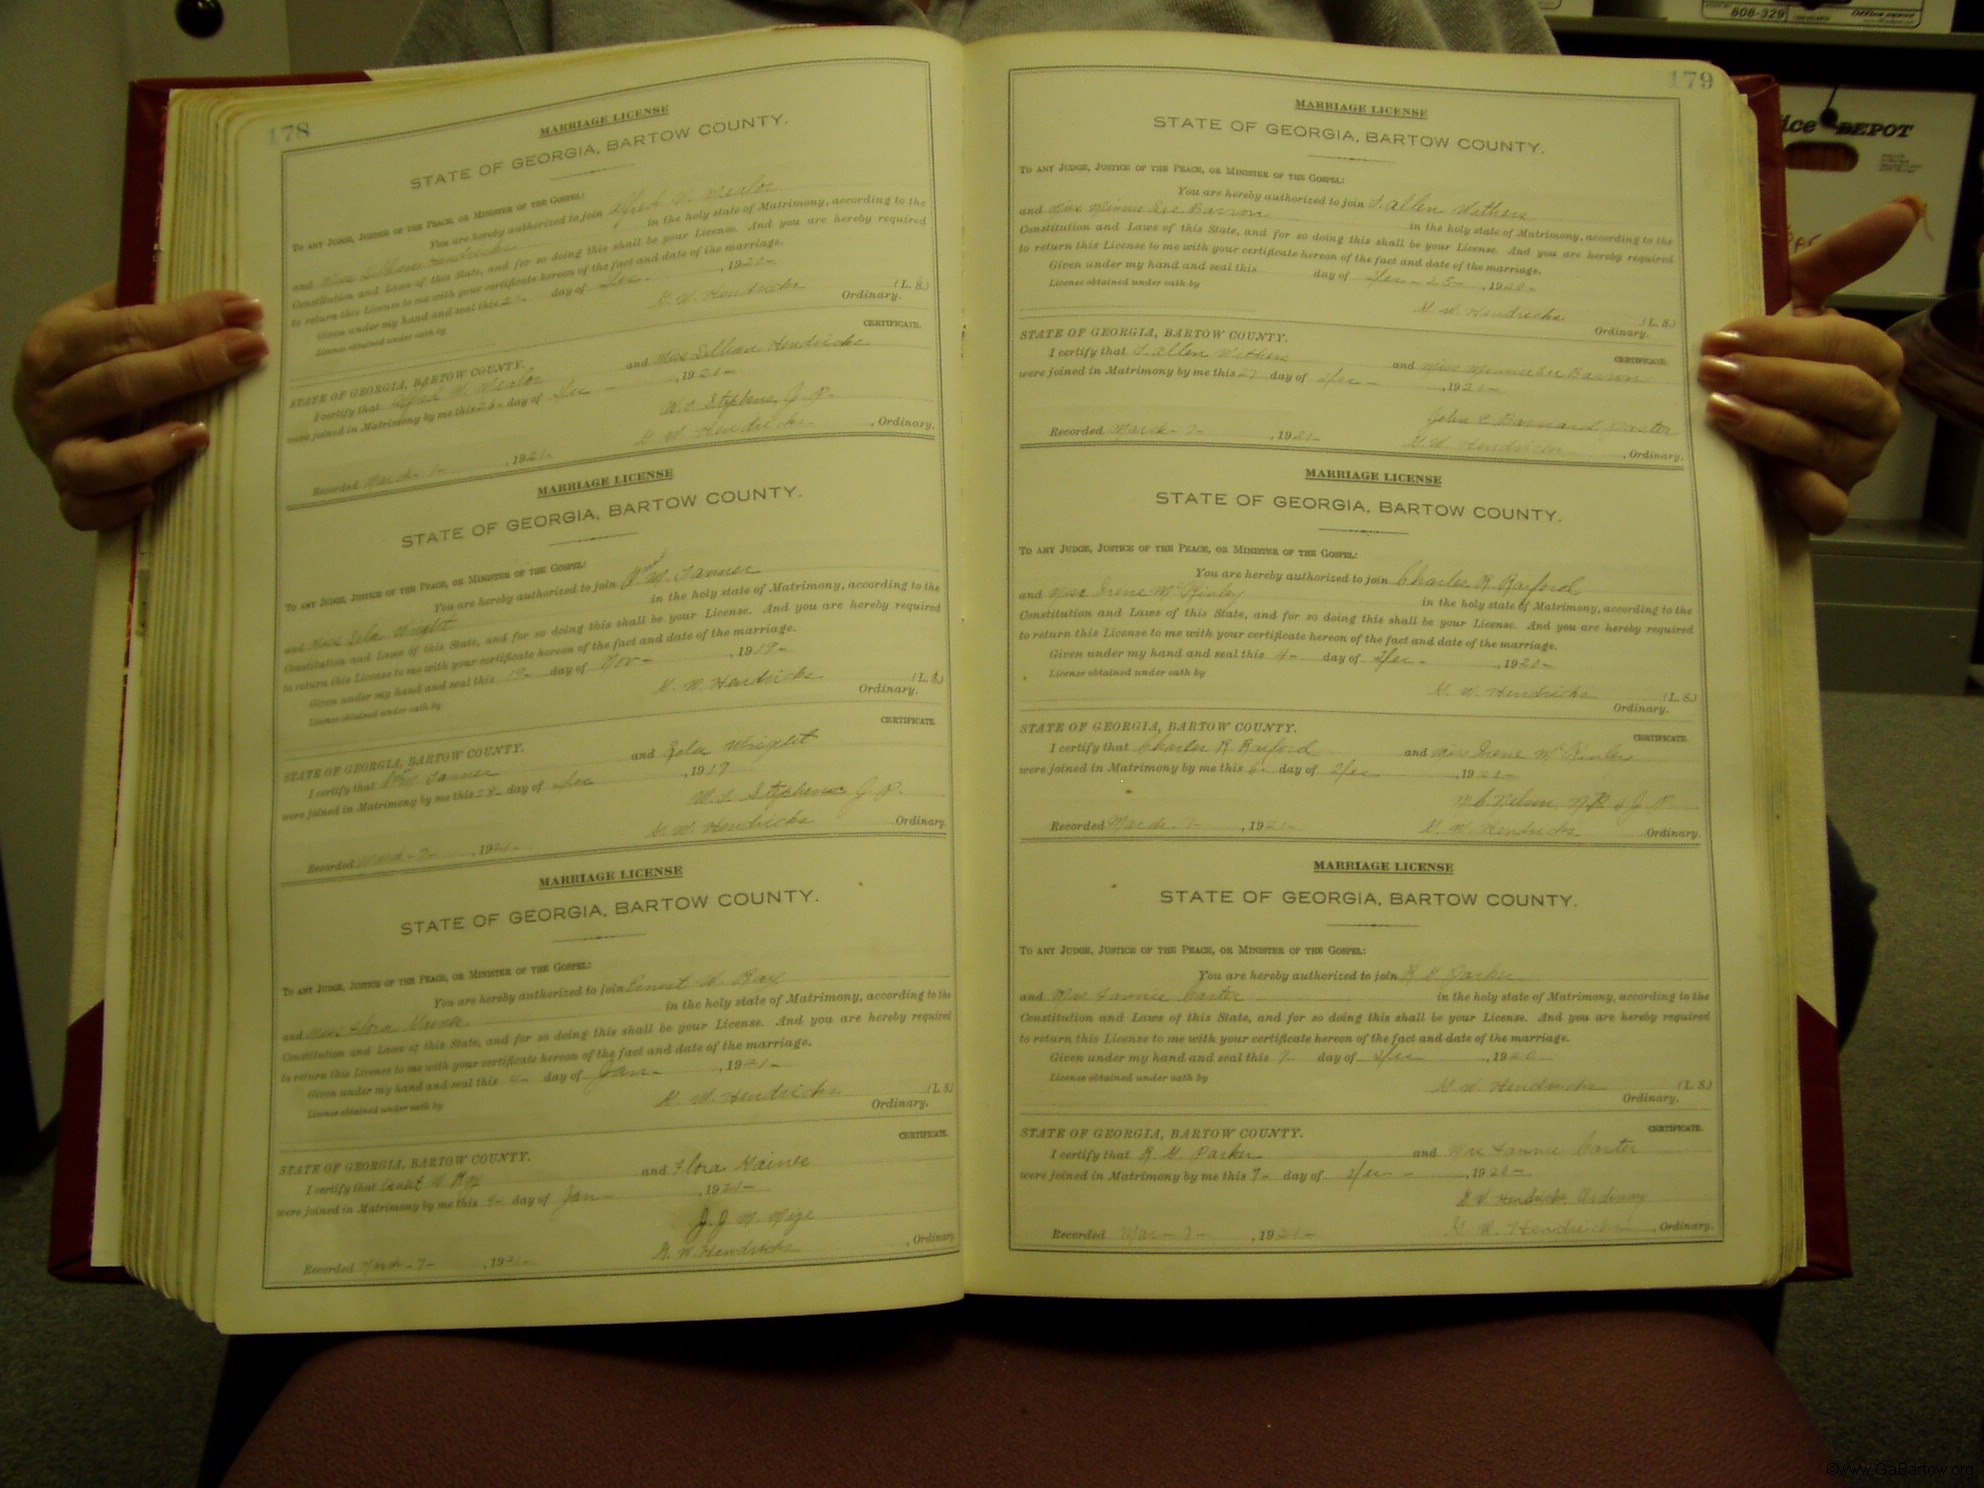 178
MARRIAGE LICENSE
STATE OF GEORGIA, BARTOW COUNTY.
TO ANY JUDGE, JUSTICE OF THE PEACE, OR MINISTER OF THE GOSPEL:
You are hereby authorized to join Alfred W. Mealor
and Miss Lillian Hendricks in the holy state of Matrimony, according to the
Constitution and Laws of this State, and for so doing this shall be your License. And you are hereby required
to return this License to me with your certificate hereon of the fact and date of the marriage.
Given under my hand and seal this day of Dec - , 1920-
License obtained under oath by
G. W. Hendricks (L. S.)
Ordinary.
CERTIFICATE.
STATE OF GEORGIA, BARTOW COUNTY.
I certify that Alfred W. Mealor and Miss Lillian Hendricks
were joined in Matrimony by me this day of Dec - , 1920-
W. L. Stephens, J. P.
Recorded March - 7 - , 1921- G. W. Hendricks , Ordinary.
MARRIAGE LICENSE
STATE OF GEORGIA, BARTOW COUNTY.
TO ANY JUDGE, JUSTICE OF THE PEACE, OR MINISTER OF THE GOSPEL:
You are hereby authorized to join Wm. Tanner
and Miss Lela Wright in the holy state of Matrimony, according to the
Constitution and Laws of this State, and for so doing this shall be your License. And you are hereby required
to return this License to me with your certificate hereon of the fact and date of the marriage.
Given under my hand and seal this 19- day of Nov - , 1919-
License obtained under oath by
G. W. Hendricks (L. S.)
Ordinary.
CERTIFICATE.
STATE OF GEORGIA, BARTOW COUNTY.
I certify that Wm Tanner and Lela Wright
were joined in Matrimony by me this day of Dec , 1919
W. L. Stephens J. P.
Recorded March - 7 - , 1921- G. W. Hendricks Ordinary.
MARRIAGE LICENSE
STATE OF GEORGIA, BARTOW COUNTY.
TO ANY JUDGE, JUSTICE OF THE PEACE, OR MINISTER OF THE GOSPEL:
You are hereby authorized to join Ernest W. Ray
and Miss Flora Gaines in the holy state of Matrimony, according to the
Constitution and Laws of this State, and for so doing this shall be your License. And you are hereby required
to return this License to me with your certificate hereon of the fact and date of the marriage.
Given under my hand and seal this 4- day of Jan - , 1921-
License obtained under oath by
G. W. Hendricks (L. S.)
Ordinary.
CERTIFICATE.
STATE OF GEORGIA, BARTOW COUNTY.
I certify that Ernest W. Ray and Flora Gaines
were joined in Matrimony by me this day of Jan - , 1921-
J. J. M.
Recorded March - 7 - , 1921- G. W. Hendricks , Ordinary.
179
MARRIAGE LICENSE
STATE OF GEORGIA, BARTOW COUNTY.
TO ANY JUDGE, JUSTICE OF THE PEACE, OR MINISTER OF THE GOSPEL:
You are hereby authorized to join Allen Withers
and Miss Minnie Lee Barron in the holy state of Matrimony, according to the
Constitution and Laws of this State, and for so doing this shall be your License. And you are hereby required
to return this License to me with your certificate hereon of the fact and date of the marriage.
Given under my hand and seal this day of Dec - 25 - , 1920-
License obtained under oath by
G. W. Hendricks (L. S.)
Ordinary.
STATE OF GEORGIA, BARTOW COUNTY.
CERTIFICATE.
I certify that Allen Withers and Miss Minnie Lee Barron
were joined in Matrimony by me this 27 day of Dec - , 1920-
John Barnard Pastor
Recorded March - 7 - , 1921- G. W. Hendricks , Ordinary.
MARRIAGE LICENSE
STATE OF GEORGIA, BARTOW COUNTY.
TO ANY JUDGE, JUSTICE OF THE PEACE, OR MINISTER OF THE GOSPEL:
You are hereby authorized to join Charles R. Rayford
and Miss Irene McKinley in the holy state of Matrimony, according to the
Constitution and Laws of this State, and for so doing this shall be your License. And you are hereby required
to return this License to me with your certificate hereon of the fact and date of the marriage.
Given under my hand and seal this 4- day of Dec - , 1920-
License obtained under oath by
G. W. Hendricks (L. S.)
Ordinary.
STATE OF GEORGIA, BARTOW COUNTY.
CERTIFICATE.
I certify that Charles R. Rayford and Miss Irene McKinley
were joined in Matrimony by me this 6- day of Dec , 1920-
Nelson, N. P. & J. P.
Recorded March - 7 - , 1921- G. W. Hendricks Ordinary.
MARRIAGE LICENSE
STATE OF GEORGIA, BARTOW COUNTY.
TO ANY JUDGE, JUSTICE OF THE PEACE, OR MINISTER OF THE GOSPEL:
You are hereby authorized to join R. G. Parker
and Mrs. Fannie Carter in the holy state of Matrimony, according to the
Constitution and Laws of this State, and for so doing this shall be your License. And you are hereby required
to return this License to me with your certificate hereon of the fact and date of the marriage.
Given under my hand and seal this 7- day of Dec , 1920-
License obtained under oath by
G. W. Hendricks (L. S.)
Ordinary.
STATE OF GEORGIA, BARTOW COUNTY.
CERTIFICATE.
I certify that R. G. Parker and Mrs Fannie Carter
were joined in Matrimony by me this 7- day of Dec - , 1920-
G. W. Hendricks Ordinary
Recorded Mar - 7 - , 1921- G. W. Hendricks , Ordinary.
608-329
Office DEPOT
ice DEPOT
©www.GaBartow.org